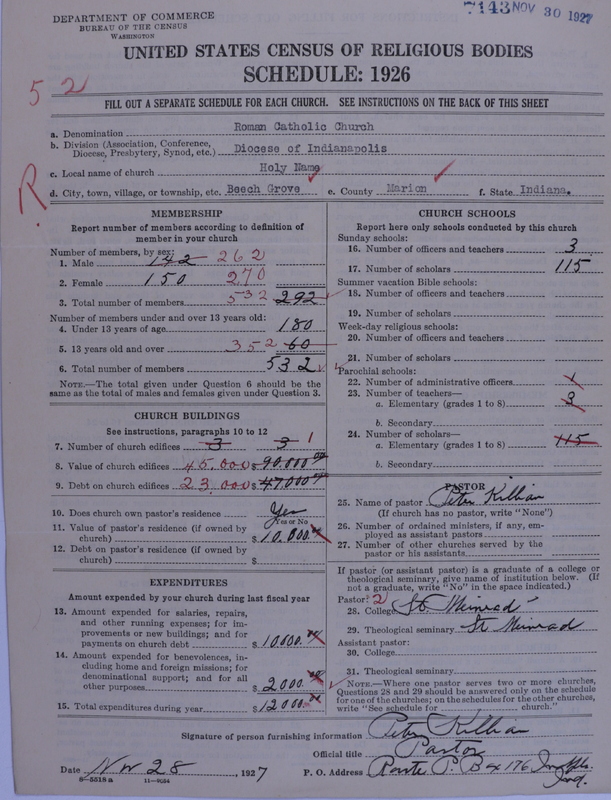 DEPARTMENT OF COMMERCE
BUREAU OF THE CENSUS
WASHINGTON
7143 NOV 30 1927
UNITED STATES CENSUS OF RELIGIOUS BODIES
SCHEDULE: 1926
52
FILL OUT A SEPARATE SCHEDULE FOR EACH CHURCH. SEE INSTRUCTIONS ON THE BACK OF THIS SHEET
a. Denomination Roman Catholic Church
b. Division (Association, Conference, Diocese, Presbytery, Synod, etc.) Diocese of Indianapolis
c. Local name of church Holy Name
R.
d. City, town, village, or township, etc. Beech Grove e. County Marion f. State Indiana.
MEMBERSHIP
Report number of members according to definition of
member in your church
Number of members, by sex:
1. Male 142 262
2. Female 150 270
3. Total number of members 532 292
Number of members under and over 13 years old:
4. Under 13 years of age 180
5. 13 years old and over 352 60
6. Total number of members 532
NOTE.—The total given under Question 6 should be the
same as the total of males and females given under Question 3.
CHURCH BUILDINGS
See instructions, paragraphs 10 to 12
7. Number of church edifices 3 3 1
8. Value of church edifices 45.000 $90.000
9. Debt on church edifices 23.000 $47000
10. Does church own pastor's residence Yes
Yes or No
11. Value of pastor's residence (if owned by
church) $10.000
12. Debt on pastor's residence (if owned by
church) $
EXPENDITURES
Amount expended by your church during last fiscal year
13. Amount expended for salaries, repairs,
and other running expenses; for im-
provements or new buildings; and for
payments on church debt $10.000.
14. Amount expended for benevolences, in-
cluding home and foreign missions; for
denominational support; and for all
other purposes $2000.
15. Total expenditures during year $12000.
CHURCH SCHOOLS
Report here only schools conducted by this church
Sunday schools:
16. Number of officers and teachers 3
17. Number of scholars 115
Summer vacation Bible schools:
18. Number of officers and teachers
19. Number of scholars
Week-day religious schools:
20. Number of officers and teachers
21. Number of scholars
Parochial schools:
22. Number of administrative officers 1
23. Number of teachers—
a. Elementary (grades 1 to 8) 3
b. Secondary
24. Number of scholars—
a. Elementary (grades 1 to 8) 115
b. Secondary
PASTOR
25. Name of pastor Peter Killian
(If church has no pastor, write "None")
26. Number of ordained ministers, if any, em-
ployed as assistant pastors
27. Number of other churches served by the
pastor or his assistants
If pastor (or assistant pastor) is a graduate of a college or
theological seminary, give name of institution below. (If
not a graduate, write "No" in the space indicated.)
Pastor: 2
28. College St. Meinrad
29. Theological seminary St Meinrad
Assistant pastor:
30. College
31. Theological seminary
NOTE.—Where one pastor serves two or more churches,
Questions 28 and 29 should be answered only on the schedule
for one of the churches; on the schedules for the other churches,
write "See schedule for church."
Signature of person furnishing information Peter Killian
Official title Pastor
Date Nov 28, 1927 P. O. Address Route P. B 4176 Indpls.
Ind.
8—5518 a 11—9054